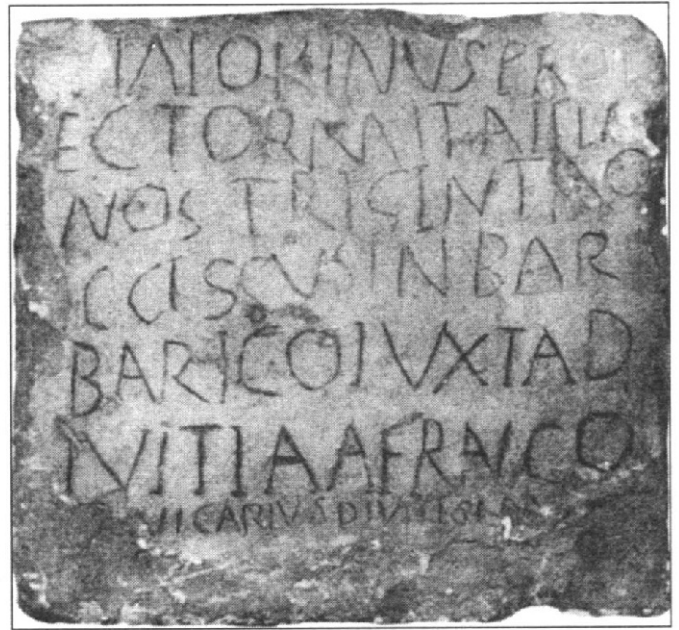 VIATORINVSPROT
ECTORMITAVITAN
NOS TRIGINTA O
CCISSVSINBAR
BARICOIVXTAD
IVITIAAFRANCO
VICARIVSDIVITESI